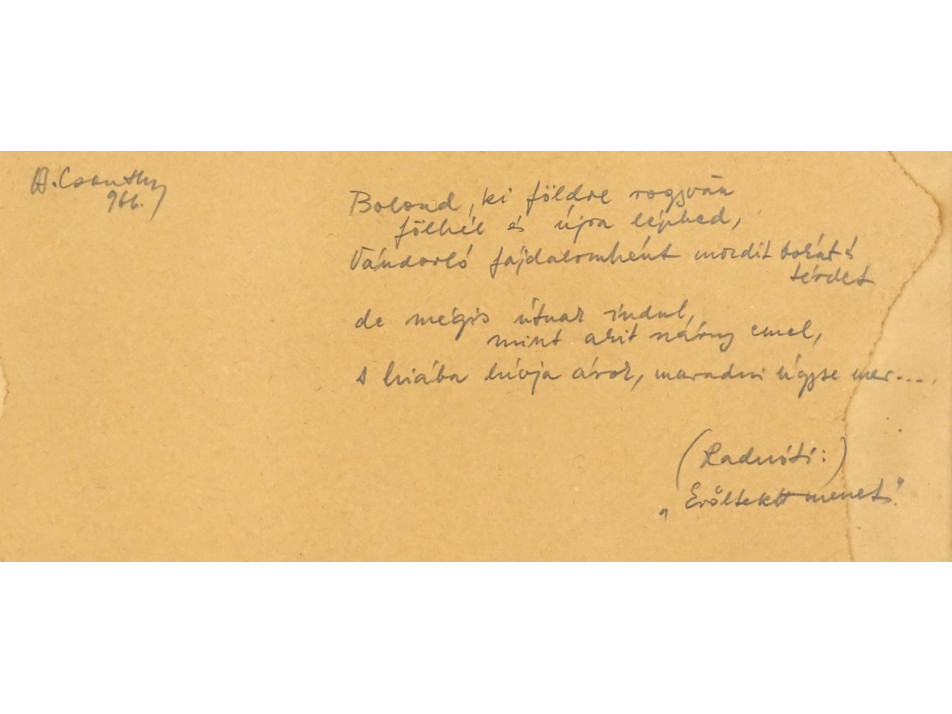 966.
Bolond, ki földre rogyván
fölkél és újra lépked,
Vándorló fájdalomként mozdit bokát s
térdet
de mégis útnak indul,
mint akit szárny emel,
s hiába hívja árok, maradni úgyse mer....
(Radnóti:)
„Erőltetett menet”